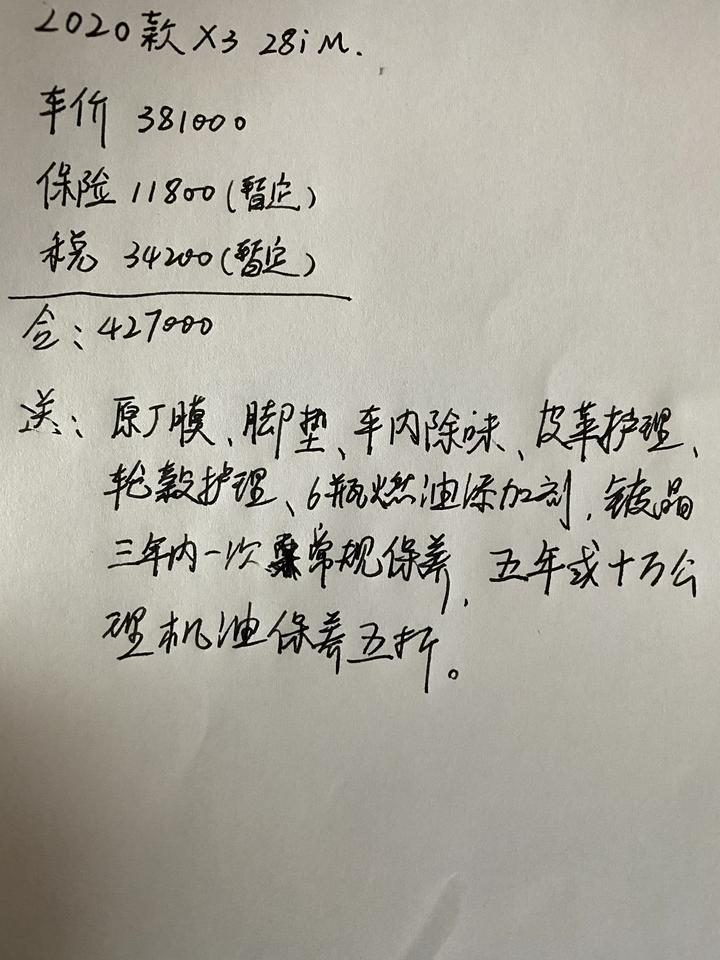 2020款 X3 28i M.
车价 381000
保险 11800(暂定)
税 34200(暂定)
合：427000
送：原厂膜、脚垫、车内除味、皮革护理、
轮毂护理、6瓶燃油添加剂，镀晶
三年内一次常规保养，五年或十万公
理机油保养五折。